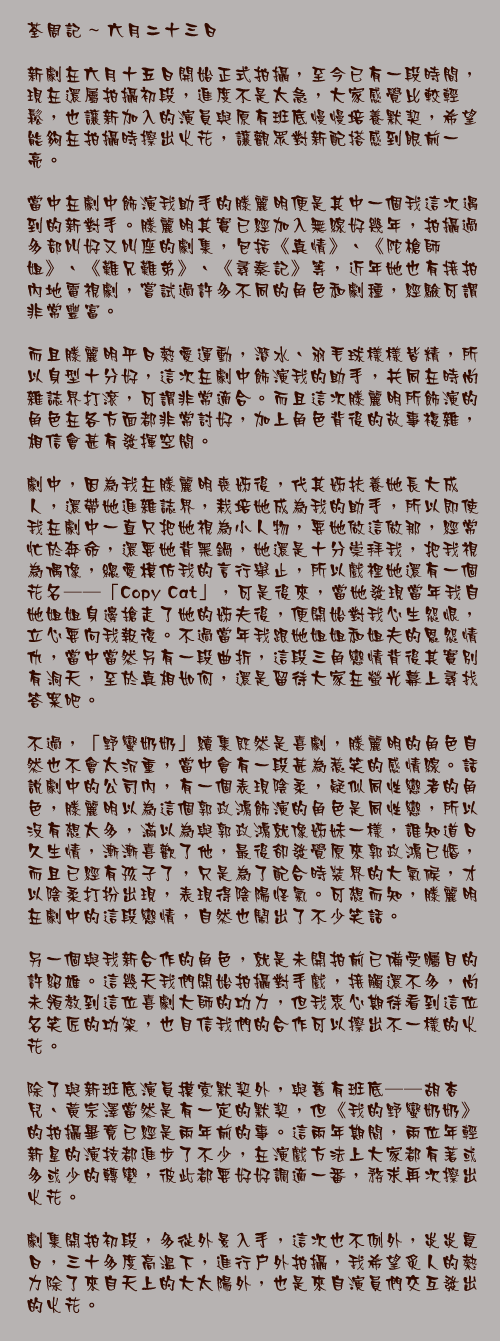 荃周記 ~ 六月二十三日
新劇在六月十五日開始正式拍攝，至今已有一段時間，
現在還屬拍攝初段，進度不是太急，大家感覺比較輕
鬆，也讓新加入的演員與原有班底慢慢培養默契，希望
能夠在拍攝時擦出火花，讓觀眾對新配搭感到眼前一
亮。
當中在劇中飾演我助手的滕麗明便是其中一個我這次遇
到的新對手。滕麗明其實已經加入無線好幾年，拍攝過
多部叫好又叫座的劇集，包括《真情》、《陀槍師
姐》、《難兄難弟》、《尋秦記》等，近年她也有接拍
內地電視劇，嘗試過許多不同的角色和劇種，經驗可謂
非常豐富。
而且滕麗明平日熱愛運動，潛水、羽毛球樣樣皆精，所
以身型十分好，這次在劇中飾演我的助手，共同在時尚
雜誌界打滾，可謂非常適合。而且這次滕麗明所飾演的
角色在各方面都非常討好，加上角色背後的故事複雜，
相信會甚有發揮空間。
劇中，因為我在滕麗明喪姊後，代其姊扶養她長大成
人，還帶她進雜誌界，栽培她成為我的助手，所以即使
我在劇中一直只把她視為小人物，要她做這做那，經常
忙於奔命，還要她背黑鍋，她還是十分崇拜我，把我視
為偶像，總愛模仿我的言行舉止，所以戲裡她還有一個
花名——「Copy Cat」，可是後來，當她發現當年我自
她姐姐身邊搶走了她的姊夫後，便開始對我心生怨恨，
立心要向我報復。不過當年我跟她姐姐和姐夫的恩怨情
仇，當中當然另有一段曲折，這段三角戀情背後其實別
有洞天，至於真相如何，還是留待大家在螢光幕上尋找
答案吧。
不過，「野蠻奶奶」續集既然是喜劇，滕麗明的角色自
然也不會太沉重，當中會有一段甚為惹笑的感情線。話
說劇中的公司內，有一個表現陰柔，疑似同性戀者的角
色，滕麗明以為這個郭政鴻飾演的角色是同性戀，所以
沒有想太多，滿以為與郭政鴻就像姊妹一樣，誰知道日
久生情，漸漸喜歡了他，最後卻發覺原來郭政鴻已婚，
而且已經有孩子了，只是為了配合時裝界的大氣候，才
以陰柔打扮出現，表現得陰陽怪氣。可想而知，滕麗明
在劇中的這段戀情，自然也鬧出了不少笑話。
另一個與我新合作的角色，就是未開拍前已備受矚目的
許紹雄。這幾天我們開始拍攝對手戲，接觸還不多，尚
未領教到這位喜劇大師的功力，但我衷心期待看到這位
名笑匠的功架，也自信我們的合作可以擦出不一樣的火
花。
除了與新班底演員摸索默契外，與舊有班底——胡杏
兒、黃宗澤當然是有一定的默契，但《我的野蠻奶奶》
的拍攝畢竟已經是兩年前的事。這兩年期間，兩位年輕
新星的演技都進步了不少，在演戲方法上大家都有著或
多或少的轉變，彼此都要好好調適一番，務求再次擦出
火花。
劇集開拍初段，多從外景入手，這次也不例外，炎炎夏
日，三十多度高溫下，進行戶外拍攝，我希望炙人的熱
力除了來自天上的大太陽外，也是來自演員們交互發出
的火花。